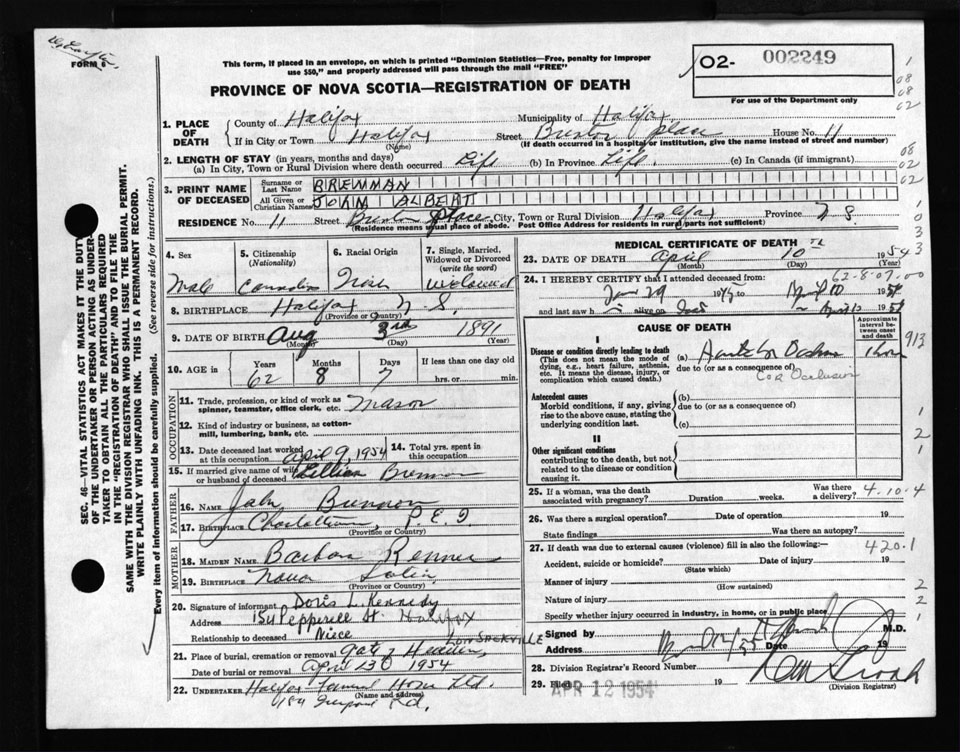 FORM 6
This form, if placed in an envelope, on which is printed "Dominion Statistics—Free, penalty for improper
use $50," and properly addressed will pass through the mail "FREE"
02- 002249
For use of the Department only
PROVINCE OF NOVA SCOTIA—REGISTRATION OF DEATH
1. PLACE OF DEATH
County of Halifax Municipality of Halifax
If in City or Town Halifax Street Place House No. 11
(Name) (If death occurred in a hospital or institution, give the name instead of street and number)
2. LENGTH OF STAY (in years, months and days)
(a) In City, Town or Rural Division where death occurred Life (b) In Province Life. (c) In Canada (if immigrant)
3. PRINT NAME OF DECEASED
Surname or Last Name BRENNAN
All Given or Christian Names JOHN ALBERT
RESIDENCE No. 11 Street Place City, Town or Rural Division Halifax Province N S
(Residence means usual place of abode. Post Office Address for residents in rural parts not sufficient)
4. Sex Male
5. Citizenship (Nationality) Canadian
6. Racial Origin Irish
7. Single, Married, Widowed or Divorced (write the word) Widowed
8. BIRTHPLACE Halifax N. S.
(Province or Country)
9. DATE OF BIRTH Aug 3rd 1891
(Month) (Day) (Year)
10. AGE in Years Months Days If less than one day old
62 8 7 hrs. or min.
OCCUPATION
11. Trade, profession, or kind of work as
spinner, teamster, office clerk, etc. Mason
12. Kind of industry or business, as cotton-
mill, lumbering, bank, etc.
13. Date deceased last worked April 9, 1954 14. Total yrs. spent in
15. If married give name of wife
or husband of deceased Lillian Brennan
FATHER
16. NAME John Brennan
17. BIRTHPLACE Charlottetown, P.E.I.
(Province or Country)
MOTHER
18. MAIDEN NAME Barbara
19. BIRTHPLACE Nova Scotia
(Province or Country)
20. Signature of informant Doris L. Kennedy
Address 154 Pepperell St. Halifax
Relationship to deceased Niece
LOW SACKVILLE
21. Place of burial, cremation or removal Gate of Heaven
Date of burial or removal April 13 1954
22. UNDERTAKER Halifax Funeral Home Ltd.
(Name and address)
MEDICAL CERTIFICATE OF DEATH
23. DATE OF DEATH April 10th 1954
(Month) (Day) (Year)
62-8-07-00
24. I HEREBY CERTIFY that I attended deceased from:
Jan 29 to April 10 1954
and last saw h alive on
CAUSE OF DEATH
Approximate interval between onset and death
I
Disease or condition directly leading to death (a)
(This does not mean the mode of
dying, e.g., heart failure, asthenia,
etc. It means the disease, injury, or
complication which caused death.)
due to (or as a consequence of)
Occlusion
Antecedent causes (b)
Morbid conditions, if any, giving
rise to the above cause, stating the
underlying condition last.
due to (or as a consequence of)
(c)
II
Other significant conditions
contributing to the death, but not
related to the disease or condition
causing it.
25. If a woman, was the death
associated with pregnancy? Duration weeks. Was there a delivery?
4-10-4
26. Was there a surgical operation? Date of operation 19
State findings Was there an autopsy?
27. If death was due to external causes (violence) fill in also the following:—
420.1
Accident, suicide or homicide? Date of injury 19
(State which)
Manner of injury
(How sustained)
Nature of injury
Specify whether injury occurred in industry, in home, or in public place
Signed by M.D.
Address Date 19
28. Division Registrar's Record Number
29. Filed APR 12 1954 19
(Division Registrar)
SEC. 46—VITAL STATISTICS ACT MAKES IT THE DUTY
OF THE UNDERTAKER OR PERSON ACTING AS UNDER-
TAKER TO OBTAIN ALL THE PARTICULARS REQUIRED
IN THE "REGISTRATION OF DEATH" AND TO FILE THE
SAME WITH THE DIVISION REGISTRAR WHO SHALL ISSUE THE BURIAL PERMIT.
WRITE PLAINLY WITH UNFADING INK. THIS IS A PERMANENT RECORD.
Every item of information should be carefully supplied. (See reverse side for instructions.)
1
08
08
02
08
02
02
913